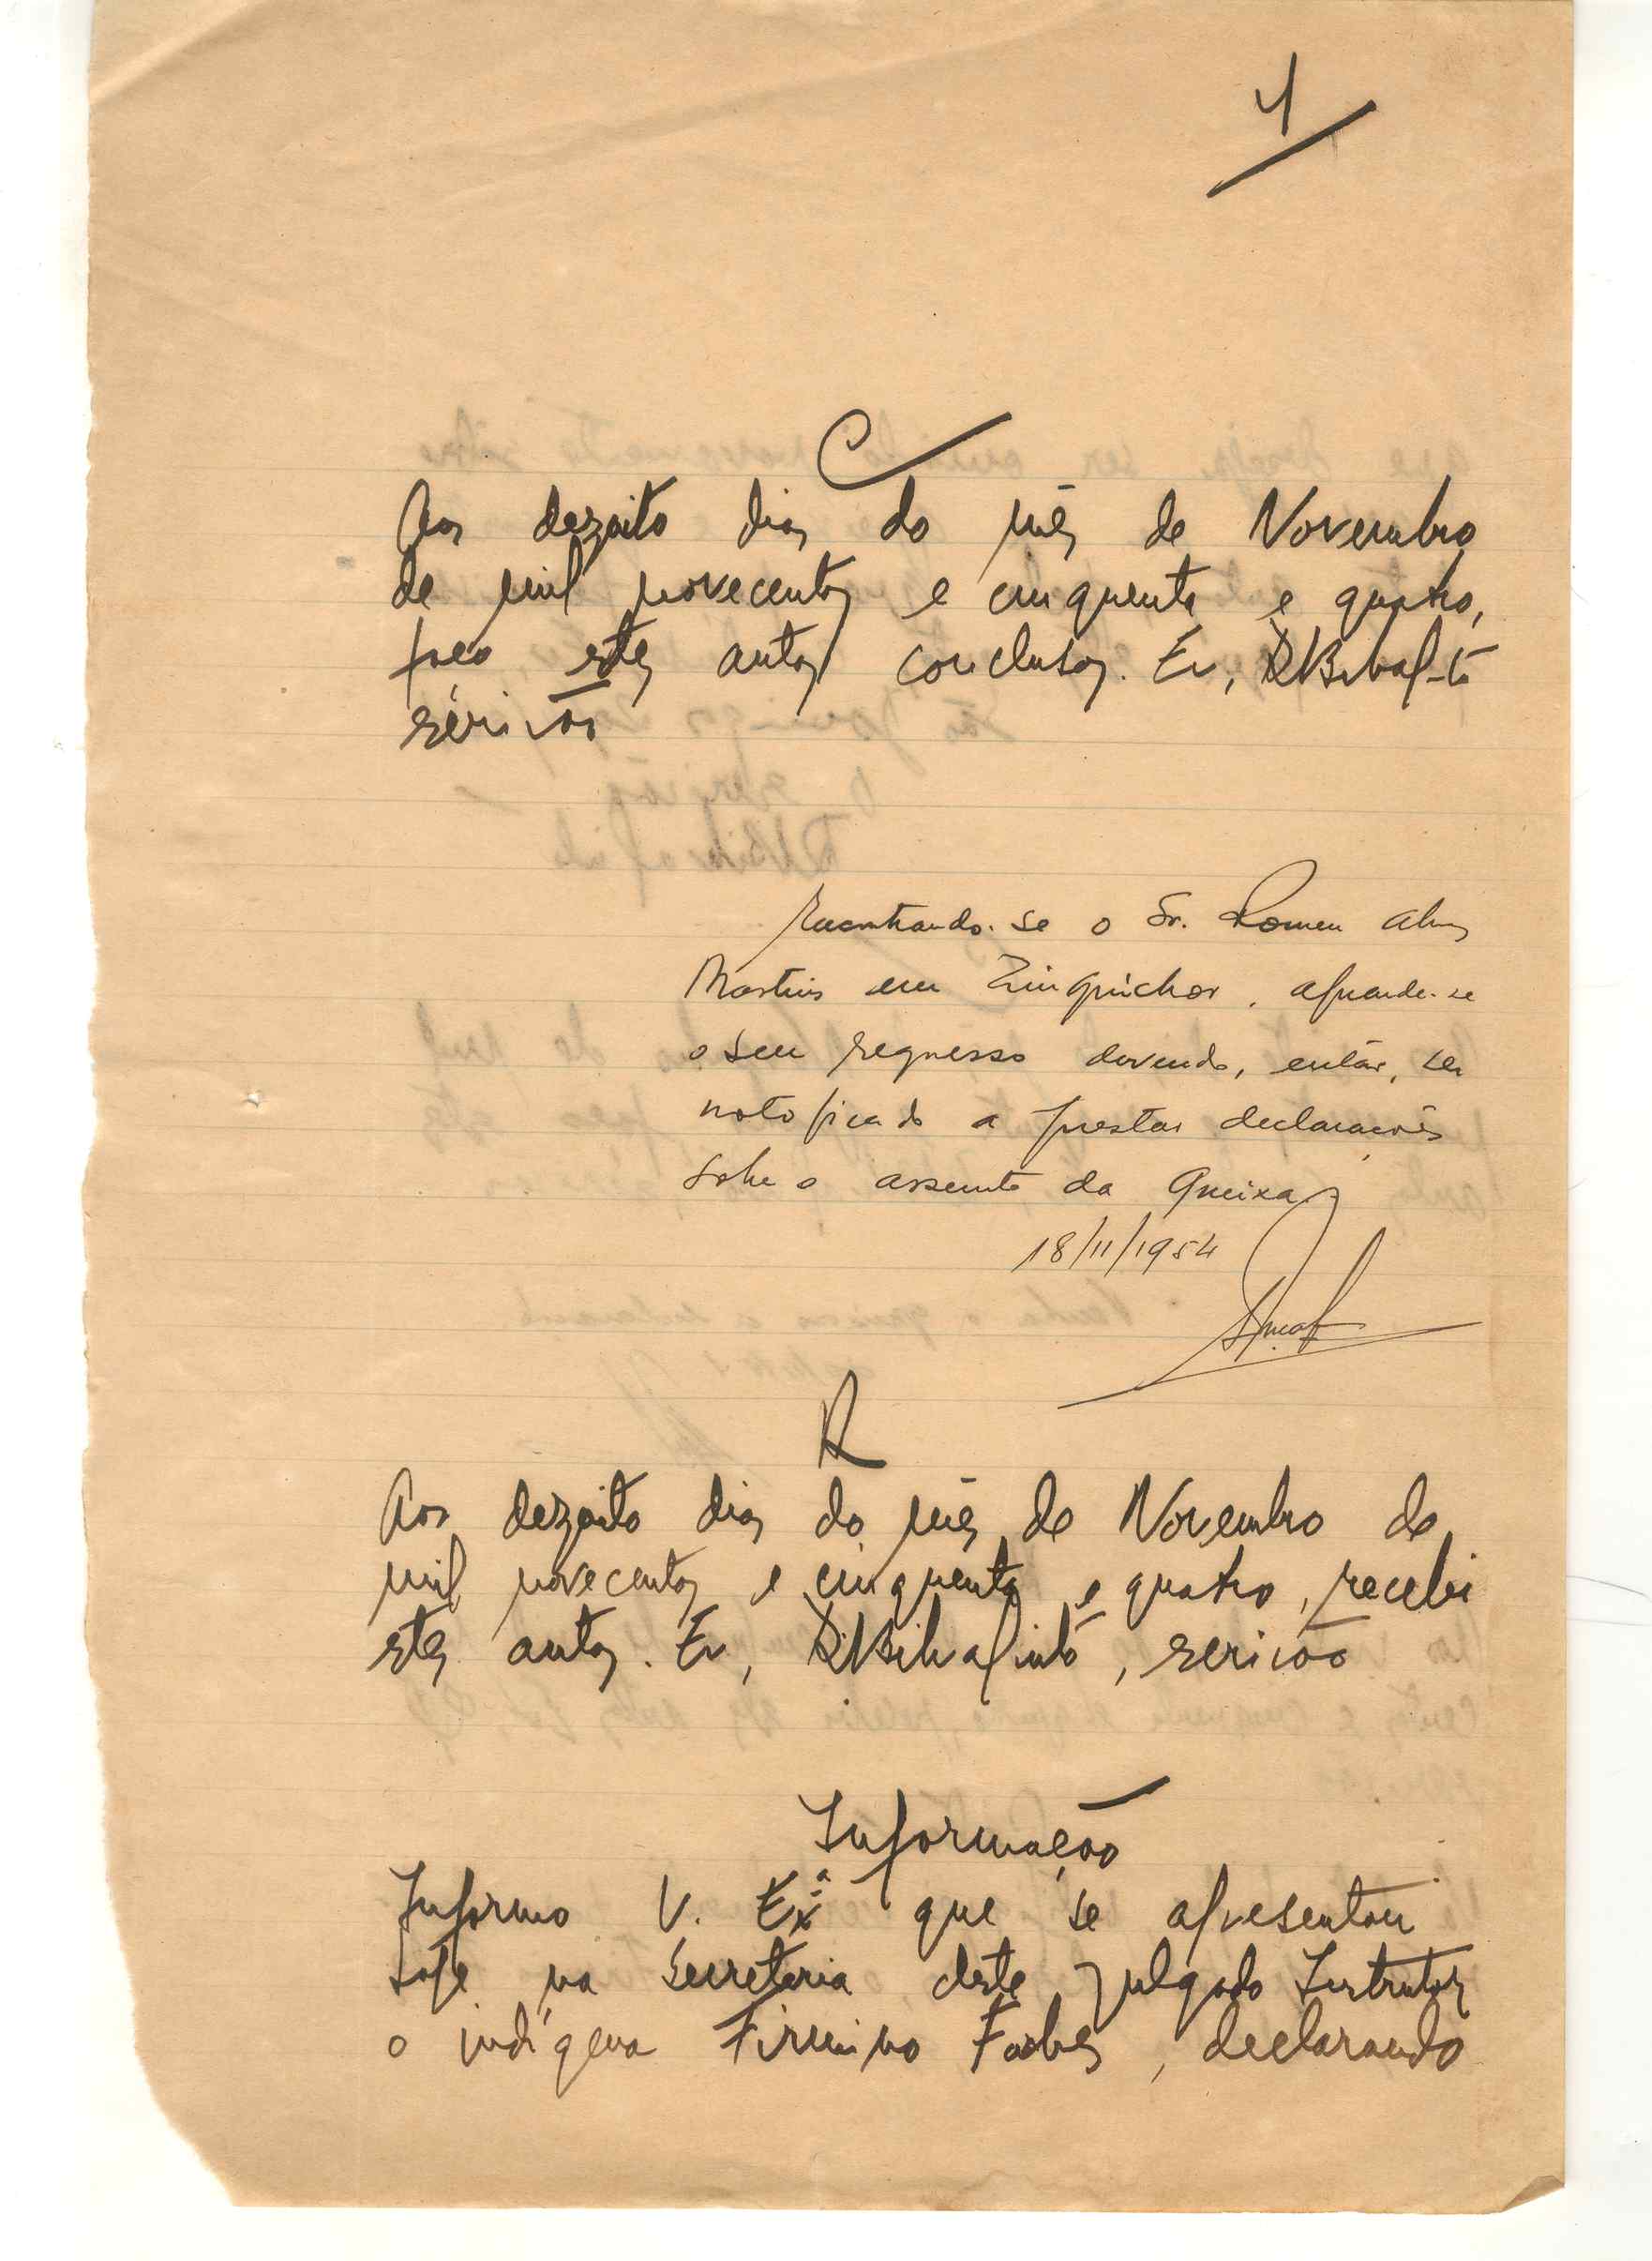 4
C
Aos dezoito dias do mês de Novembro
de mil novecentos e cinquenta e quatro,
faço estes autos conclusos. Eu,
escrivão
Encontrando-se o Sr. Romeu Alves
Martins em Zinguichor, aguarde-se
o seu regresso devendo, então, ser
notificado a prestar declarações
sobre o assunto da queixa
18/11/1954
R
Aos dezoito dias do mês de Novembro de
mil novecentos e cinquenta e quatro, recebi
estes autos. Eu, escrivão
Informação
Informo V. Exª que se apresentou
hoje na Secretaria deste Julgado Instrutor
o indígena Firmino Forbes, declarando